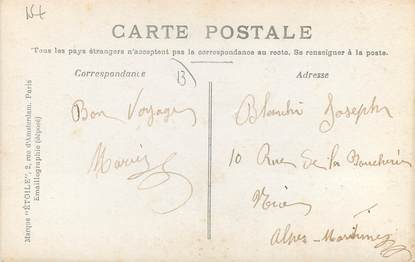 N+
CARTE POSTALE
Tous les pays étrangers n'acceptent pas la correspondance au recto. Se renseigner à la poste.
Correspondance
13
Adresse
Bon Voyage
Marius
Blanchi Joseph
10 Rue de la Boucherie
Nice
Alpes-Maritimes
Marque "ÉTOILE", 2, rue d'Amsterdam, Paris
Emaillographie (déposé)